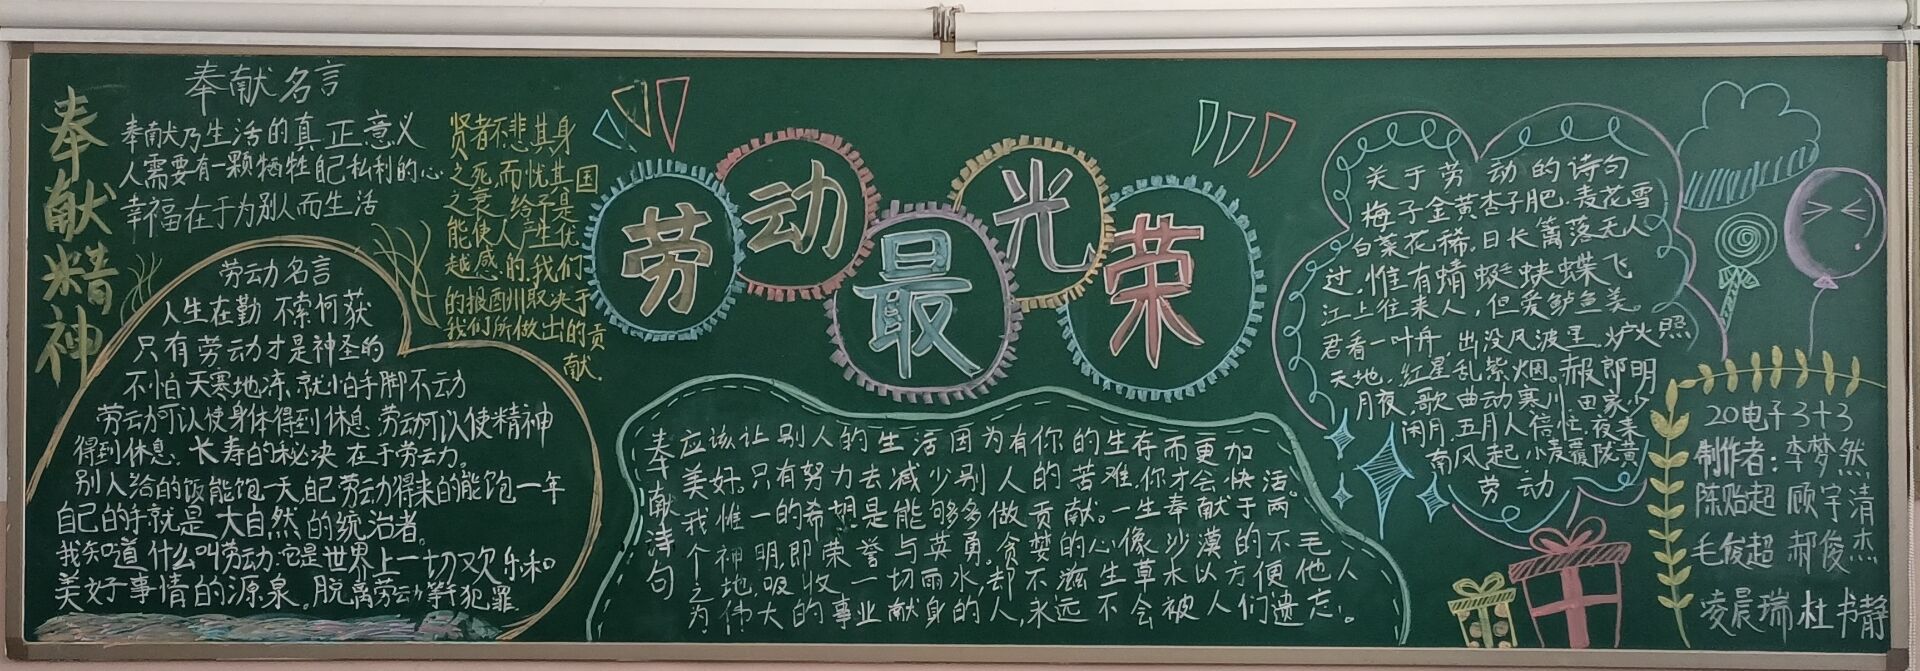 奉献精神
奉献名言
奉献乃生活的真正意义
人需要有一颗牺牲自己私利的心
幸福在于为别人而生活
贤者不悲其身
之死,而忧其国
之衰,给予是
能使人产生优
越感的,我们
的报酬州取决于
我们所做出的贡
献.
劳动名言
人生在勤 不索何获
只有劳动才是神圣的
不怕天寒地冻,就怕手脚不动
劳动可以使身体得到休息 劳动可以使精神
得到休息. 长寿的秘决在于劳动.
别人给的饭能饱一天,自己劳动得来的能饱一年
自己的手就是大自然的统治者.
我知道什么叫劳动:它是世界上一切欢乐和
美好事情的源泉。脱离劳动等于犯罪.
劳动最光荣
奉献诗句
应该让别人的生活因为有你的生存而更加
美好.只有努力去减少别人的苦难,你才会快活。
我惟一的希望是能够多做贡献。一生奉献于两
个神明即荣誉与英勇。贪婪的心像沙漠的不毛
之地,吸收一切雨水,却不滋生草木以方便他人
为伟大的事业献身的人,永远不会被人们遗忘。
关于劳动的诗句
梅子金黄杏子肥,麦花雪
白菜花稀.日长篱落无人
过,惟有蜻蜓蛱蝶飞
江上往来人,但爱鲈鱼美。
君看一叶舟,出没风波里,炉火照
天地,红星乱紫烟。赧郎明
月夜,歌曲动寒川 田家少
闲月,五月人倍忙,夜来
南风起,小麦覆陇黄
劳动
20电子3+3
制作者:李梦然
陈贻超 顾宇清
毛俊超 郝俊杰
凌晨瑞 杜书静